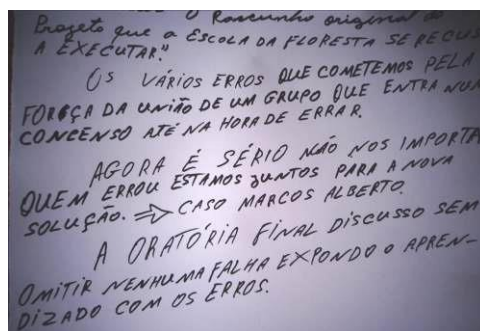 O Rascunho original do
Projeto que a ESCOLA DA FLORESTA SE RECUS
A EXECUTAR."
OS VÁRIOS ERROS QUE COMETEMOS PELA
FORÇA DA UNIÃO DE UM GRUPO QUE ENTRA NUM
CONCENSO ATÉ NA HORA DE ERRAR.
AGORA É SÉRIO NÃO NOS IMPORTA
QUEM ERROU ESTAMOS JUNTOS PARA A NOVA
SOLUÇÃO. ⇒ CASO MARCOS ALBERTO.
A ORATÓRIA FINAL DISCUSSO SEM
OMITIR NENHUMA FALHA EXPONDO O APREN-
DIZADO COM OS ERROS.